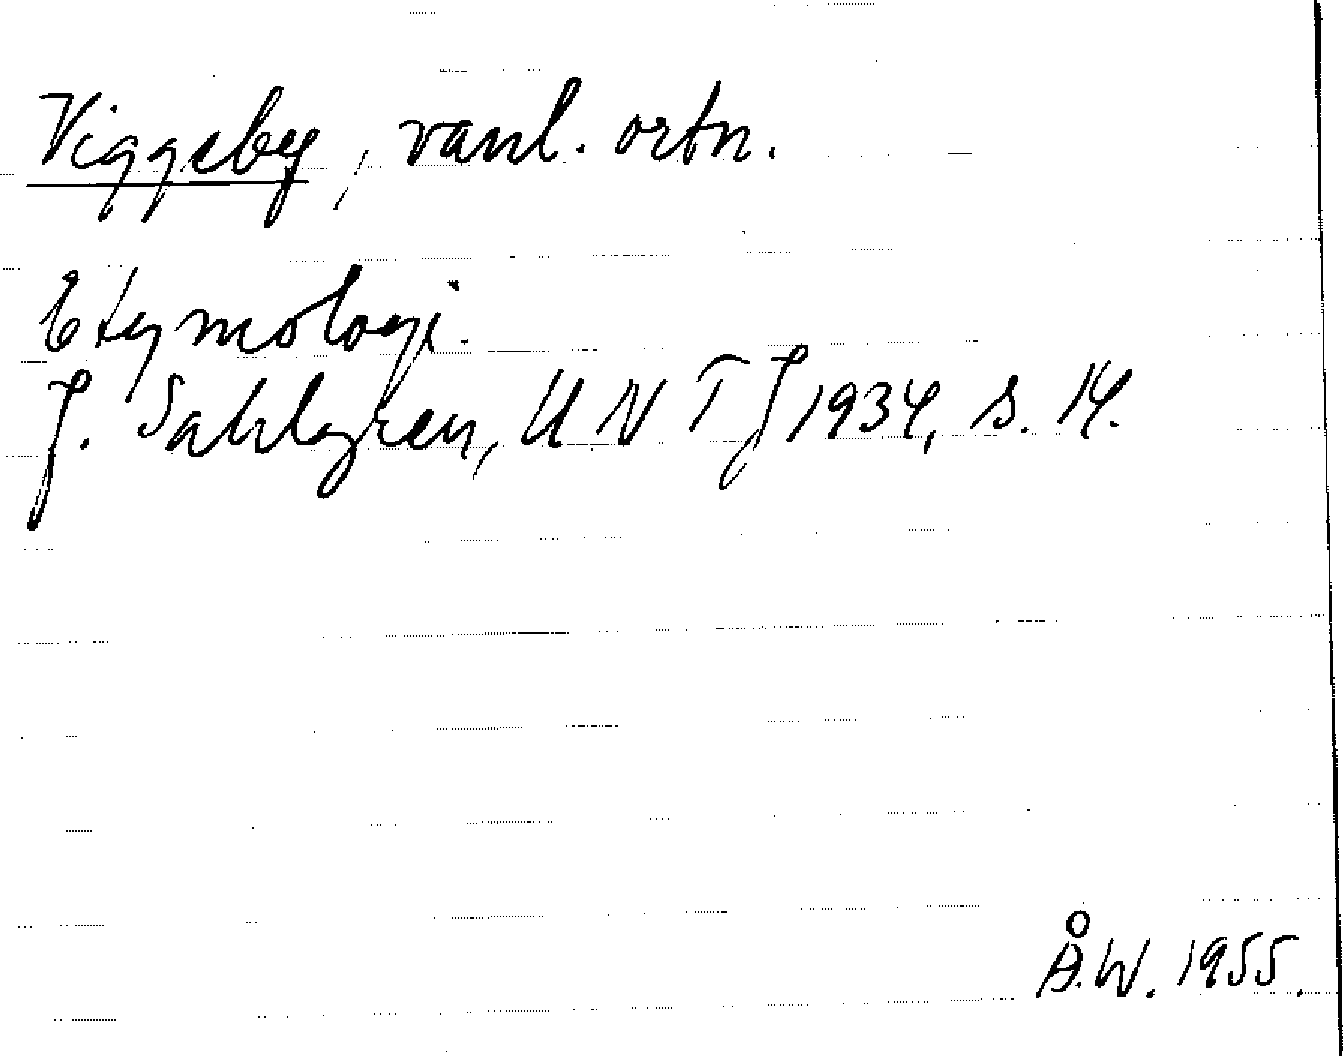 Viggeby, vanl. ortn.
Etymologi.
J. Sahlgren, UNT J 1934, s. 14.
Å.W. 1955.